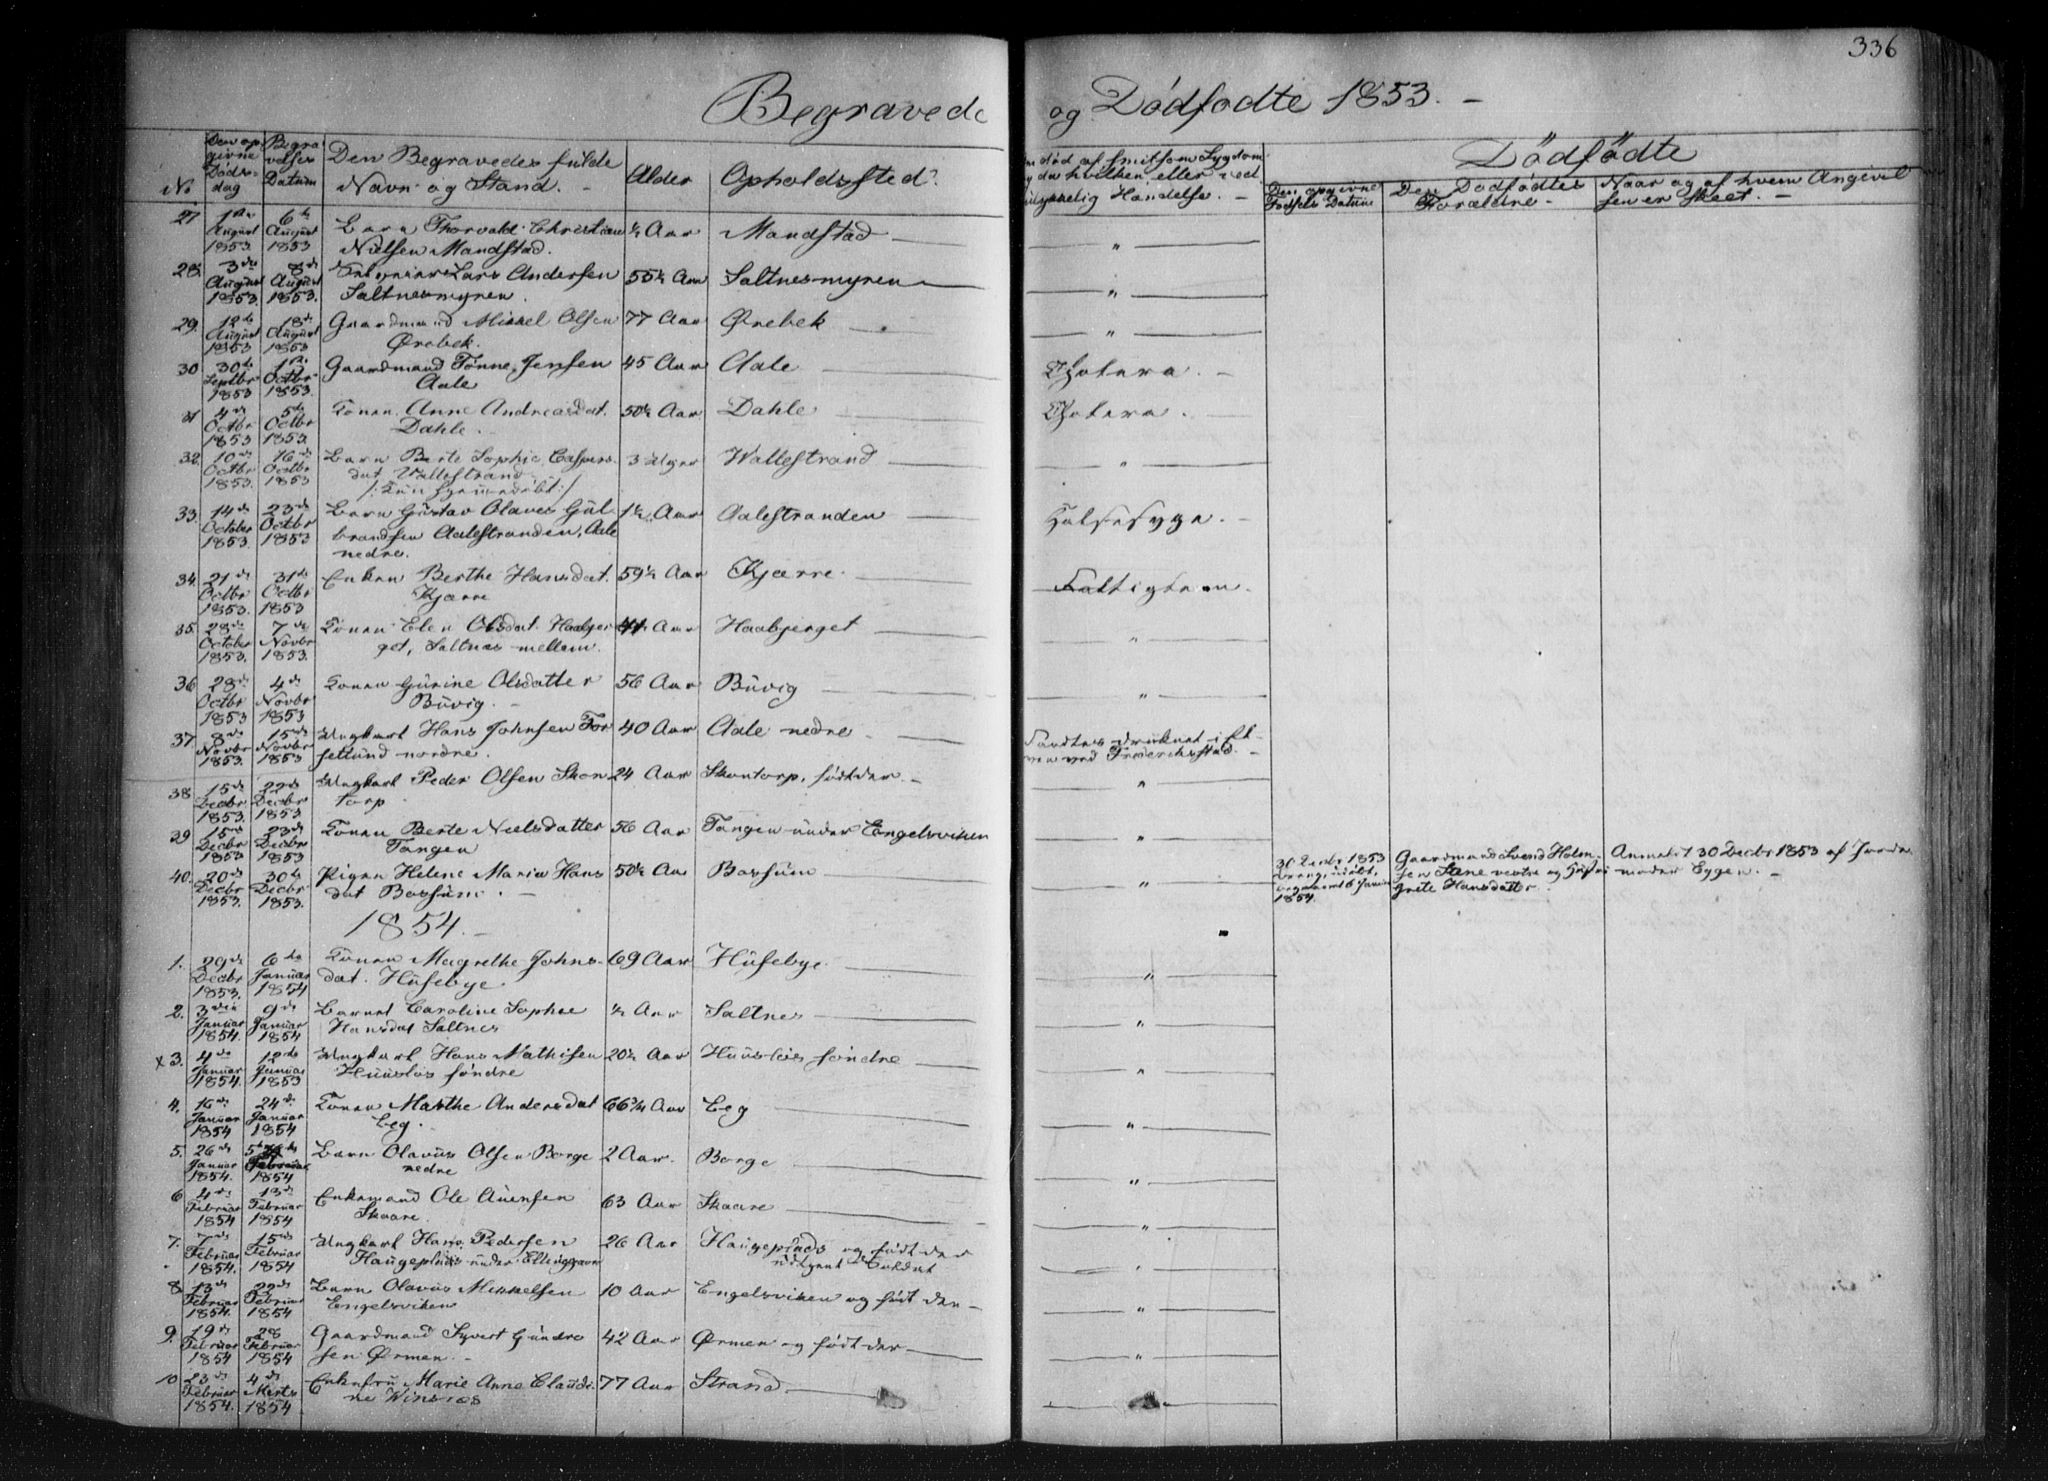 336
Begravede og Dödfödte 1853. –
No
Den opgivne Dödsdag
Begravelses Datum
Den Begravedes fulde Navn og Stand. –
Alder
Opholdssted.
død af smitsom Sygdom
hvilken eller ved
ulykkelig Hændelse. –
Dödfödte
Den opgivne Fødsels Datum
Den Dodfödtes Forældre –
Naar og af hvem Angivelsen er skeet. –
27 1ste August 1853 6te August 1853 Barn Thorvald Christian ½ Aar Mandstad "
Nielsen Mandstad.
28. 3die August 1853. 8de August 1853. Lars Andersen 55½ Aar Saltnesmyren "
Saltnesmyren.
29. 12te August 1853 18de August 1853 Gaardmand Mikkel Olsen 77 Aar Ørebek "
Ørebek.
30 30te Septbr 1853 1ste Octbr 1853. Gaardmand Tønne Jensen 45 Aar Aale Cholera. –
Aale
31 4de Octbr 1853 5te Octbr 1853. Konen Anne Andreasdat. 50½ Aar Dahle Cholera. –
Dahle.
32. 10de Octbr 1853. 16de Octbr 1853 Barn Berte Sophie Caspers- 3 Uger Wallestrand "
dat Vallestrand
/: Kun hjemmedöbt :/
33. 14de October 1853. 23de Octbr 1853 Barn Gustav Olaves Gul- 1½ Aar Aalestranden Halssyge. –
brandsen Aalestranden, Aale
nedre.
34. 21de Octbr 1853. 31te Octbr 1853 Enken Berthe Hansdat. 59½ Aar Kjærre Fattiglem.
Kjærre
35. 28de October 1853. 7de Novbr 1853. Konen Elen Olsdat. Haabjer- Aar Haabjerget "
get, Saltnes mellem.
36 28de Octbr 1853 4de Novbr 1853 Konen Gurine Olsdatter 56 Aar Buvig "
Buvig. –
37. 8de Novbr 1853. 15de Novbr 1853 Ungkarl Hans Johnsen Tor 40 Aar Aale nedre – druknet i El-
selund nordre. ven ved Frederikstad. –
38. 15de Decbr 1853. 22de Decbr 1853 Ungkarl Peder Olsen Skon 24 Aar Skontorp, født der – "
torp
39 15de Decbr 1853 23de Decbr 1853 Konen Berte Nielsdatter 56 Aar Tangen under Engelsviken "
Tangen
40. 20de Decbr 1853. 30te Decbr 1853. Pigen Helene Maria Hans 50½ Aar Bossum "
dat Bossum. –
30 Decbr 1853 Gaardmand Svend Holm- Anmeldt 30 Decbr 1853 af Jorde-
sen vestre og moder Eggen. –
begravet 6 Januar grete Hansdatter
1854.
1854. –
1. 29de Decbr 1853. 6te Januar 1854 Konen Magrethe Johns- 69 Aar Husebye "
dat. Husebye
2. 3die Januar 1854. 9de Januar 1854 Barnet Caroline Sophie ½ Aar Saltnes "
Hansdat Saltnes
x 3. 4de Januar 1854. 12te Januar 1853 Ungkarl Hans Mathisen 20½ Aar Huuslös søndre "
Huuslös søndre
4. 16de Januar 1854 24de Januar 1854 Konen Marthe Andersdat 66¾ Aar Eeg "
Eeg.
5. 26de Januar 1854. 5te Februar 1854 Barn Olavus Olsen Borge 2 Aar. Borge "
nedre
6 4de Februar 1854 13de Februar 1854 Enkemand Ole Avensen 63 Aar Skaare "
Skaare.
7. 7de Februar 1854. 15de Februar 1854 Ungkarl Hans Pedersen 26 Aar Haugeplads og født der "
Haugeplads under Ellingaard udtjent Soldat
8 13de Februar 1854. 22de Februar 1854 Barn Olavus Mikkelsen 10 Aar Engelsviken og født der – "
Engelsviken
9. 19de Februar 1854 28 Februar 1854 Gaardmand Syvert Gundro 42 Aar Ørmen og født der "
sen Ørmen. –
10 23de Februar 1854. 4de Marts 1854 Enkefru Marie Anne Claudi- 77 Aar Strand
ne Winsnes